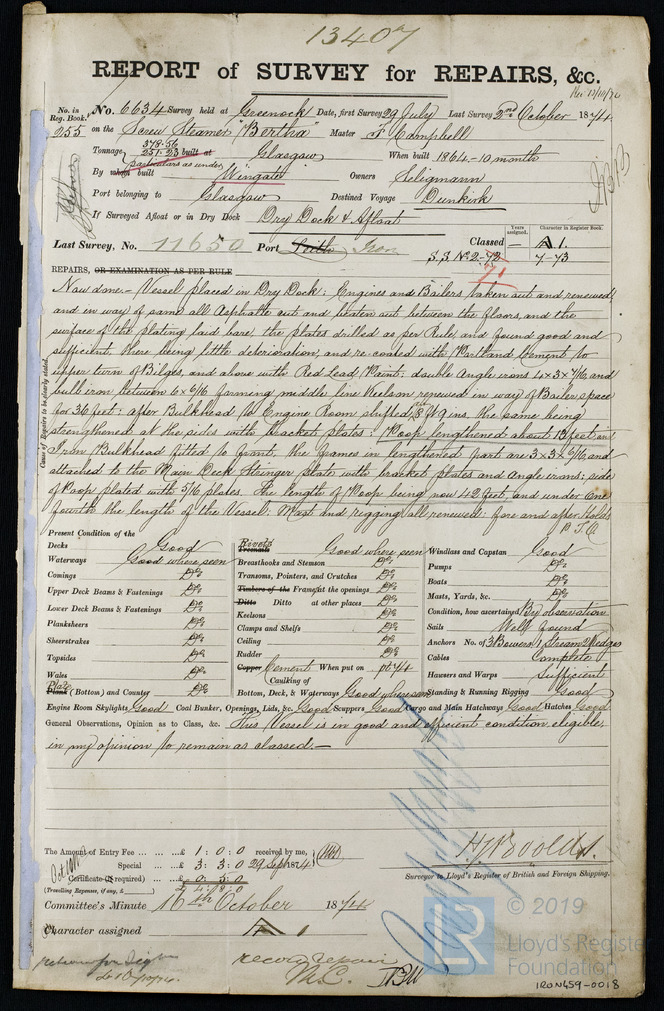 13407
REPORT of SURVEY for REPAIRS, &c.
No. in Reg. Book. 255
No. 6634 Survey held at Greenock Date, first Survey 29 July Last Survey 2nd October 1874
on the Screw Steamer "Bertha" Master J Campbell
Tonnage 378.56 251.23 built at Glasgow When built 1864-10 month
particulars as under
By whom built Wingate Owners Seligmann
Port belonging to Glasgow Destined Voyage Dunkirk
If Surveyed Afloat or in Dry Dock Dry Dock & Afloat
Years assigned. Character in Register Book.
Last Survey, No. 11650 Port Leith Iron Classed — A 1.
S.S. No 2-72 7-73
71
REPAIRS, OR EXAMINATION AS PER RULE
Cause of Repairs to be clearly stated.
Now done.— Vessel placed in Dry Dock; Engines and Boilers taken out and renewed,
and in way of same all Asphalte cut and beaten out between the floors, and the
surface of the plating laid bare, the plates drilled as per Rule, and found good and
sufficient, there being little deterioration, and re-coated with Portland Cement, to
upper turn of Bilges, and above with Red Lead Paint; double Angle irons 4x3x7/16, and
bulb iron between 6x6/16 forming middle line Keelson renewed in way of Boiler space
for 36 feet; after Bulkhead to Engine Room shifted, 8 ft 9 ins, the same being
strengthened at the sides with bracket plates; Poop lengthened about 13 feet, an
Iron Bulkhead fitted to front, the frames in lengthened part are 3x3x6/16, and
attached to the Main Deck Stringer plate with bracket plates and Angle irons; side
of Poop plated with 5/16 plates. The length of Poop being now 42 feet, and under one
fourth the length of the Vessel; Mast and rigging all renewed; fore and after Holds
P.T.O.
Present Condition of the
Decks Good
Waterways Good where seen
Comings Do
Upper Deck Beams & Fastenings Do
Lower Deck Beams & Fastenings Do
Planksheers Do
Sheerstrakes Do
Topsides Do
Wales Do
Plate Plank (Bottom) and Counter Do
Rivets Treenails Good where seen
Breasthooks and Stemson Do
Transoms, Pointers, and Crutches Do
Timbers of the Frames at the openings Do
Ditto Ditto at other places Do
Keelsons Do
Clamps and Shelfs Do
Ceiling Do
Rudder Do
Copper Cement When put on pt. 74
Caulking of
Bottom, Deck, & Waterways Good where seen
Windlass and Capstan Good
Pumps Do
Boats Do
Masts, Yards, &c. Do
Condition, how ascertained By observation
Sails Well found
Anchors No. of 3 Bowers 1 Stream 2 Kedges
Cables Complete
Hawsers and Warps Sufficient
Standing & Running Rigging Good
Engine Room Skylights Good Coal Bunker, Openings, Lids, &c. Good Scuppers Good Cargo and Main Hatchways Good Hatches Good
General Observations, Opinion as to Class, &c. This Vessel is in good and efficient condition, eligible,
in my opinion to remain as classed.—
The Amount of Entry Fee ... £ 1 : 0 : 0 received by me,
Special ... £ 3 : 3 : 0 29 Sept 1874
Certificate (if required) ... £ 0 . 5 : 0
(Travelling Expenses, if any, £ ) £ 4 : 8 : 0
Surveyor to Lloyd's Register of British and Foreign Shipping.
Committee's Minute 16th October 1874
Character assigned A 1
record repair
M.C.
LR
© 2019
Lloyd's Register
Foundation
IRON459-0018